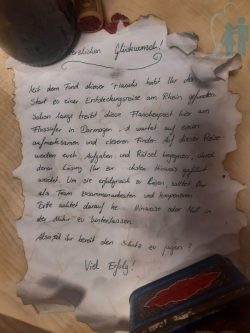 Herzlichen Glückwunsch!
Mit dem Fund dieser Flasche habt Ihr den
Start zu einer Entdeckungsreise am Rhein gefunden.
Schon lange treibt diese Flaschenpost hier am
Flussufer in Dormagen und wartet auf einen
aufmerksamen und cleveren Finder. Auf dieser Reise
werden euch Aufgaben und Rätsel begegnen, durch
deren Lösung Ihr zum nächsten Hinweis geführt
werdet. Um sie erfolgreich zu lösen solltet Ihr
als Team zusammenarbeiten und kooperieren.
Bitte achtet darauf keine Hinweise oder Müll in
der Natur zu hinterlassen.
Also seid ihr bereit den Schatz zu jagen?
Viel Erfolg!